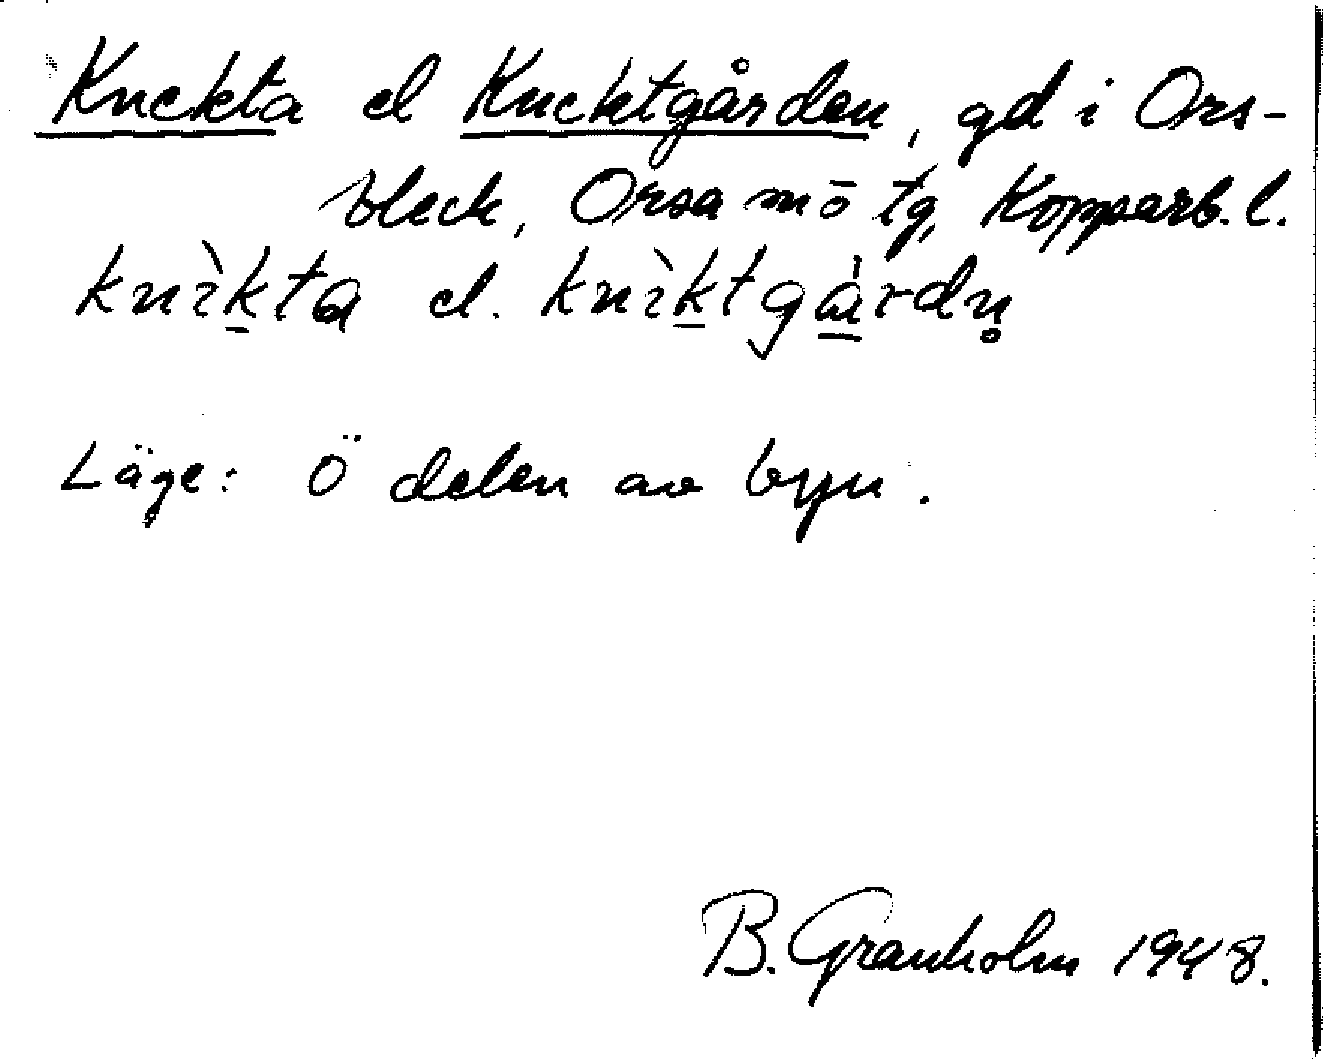 Knekta el Knektgården, gd i Ors-
bleck, Orsa mō tg, Kopparb. l.
knèkta el. knèktgàrdn̥
Läge: Ö delen av byn.
B. Granholm 1948.